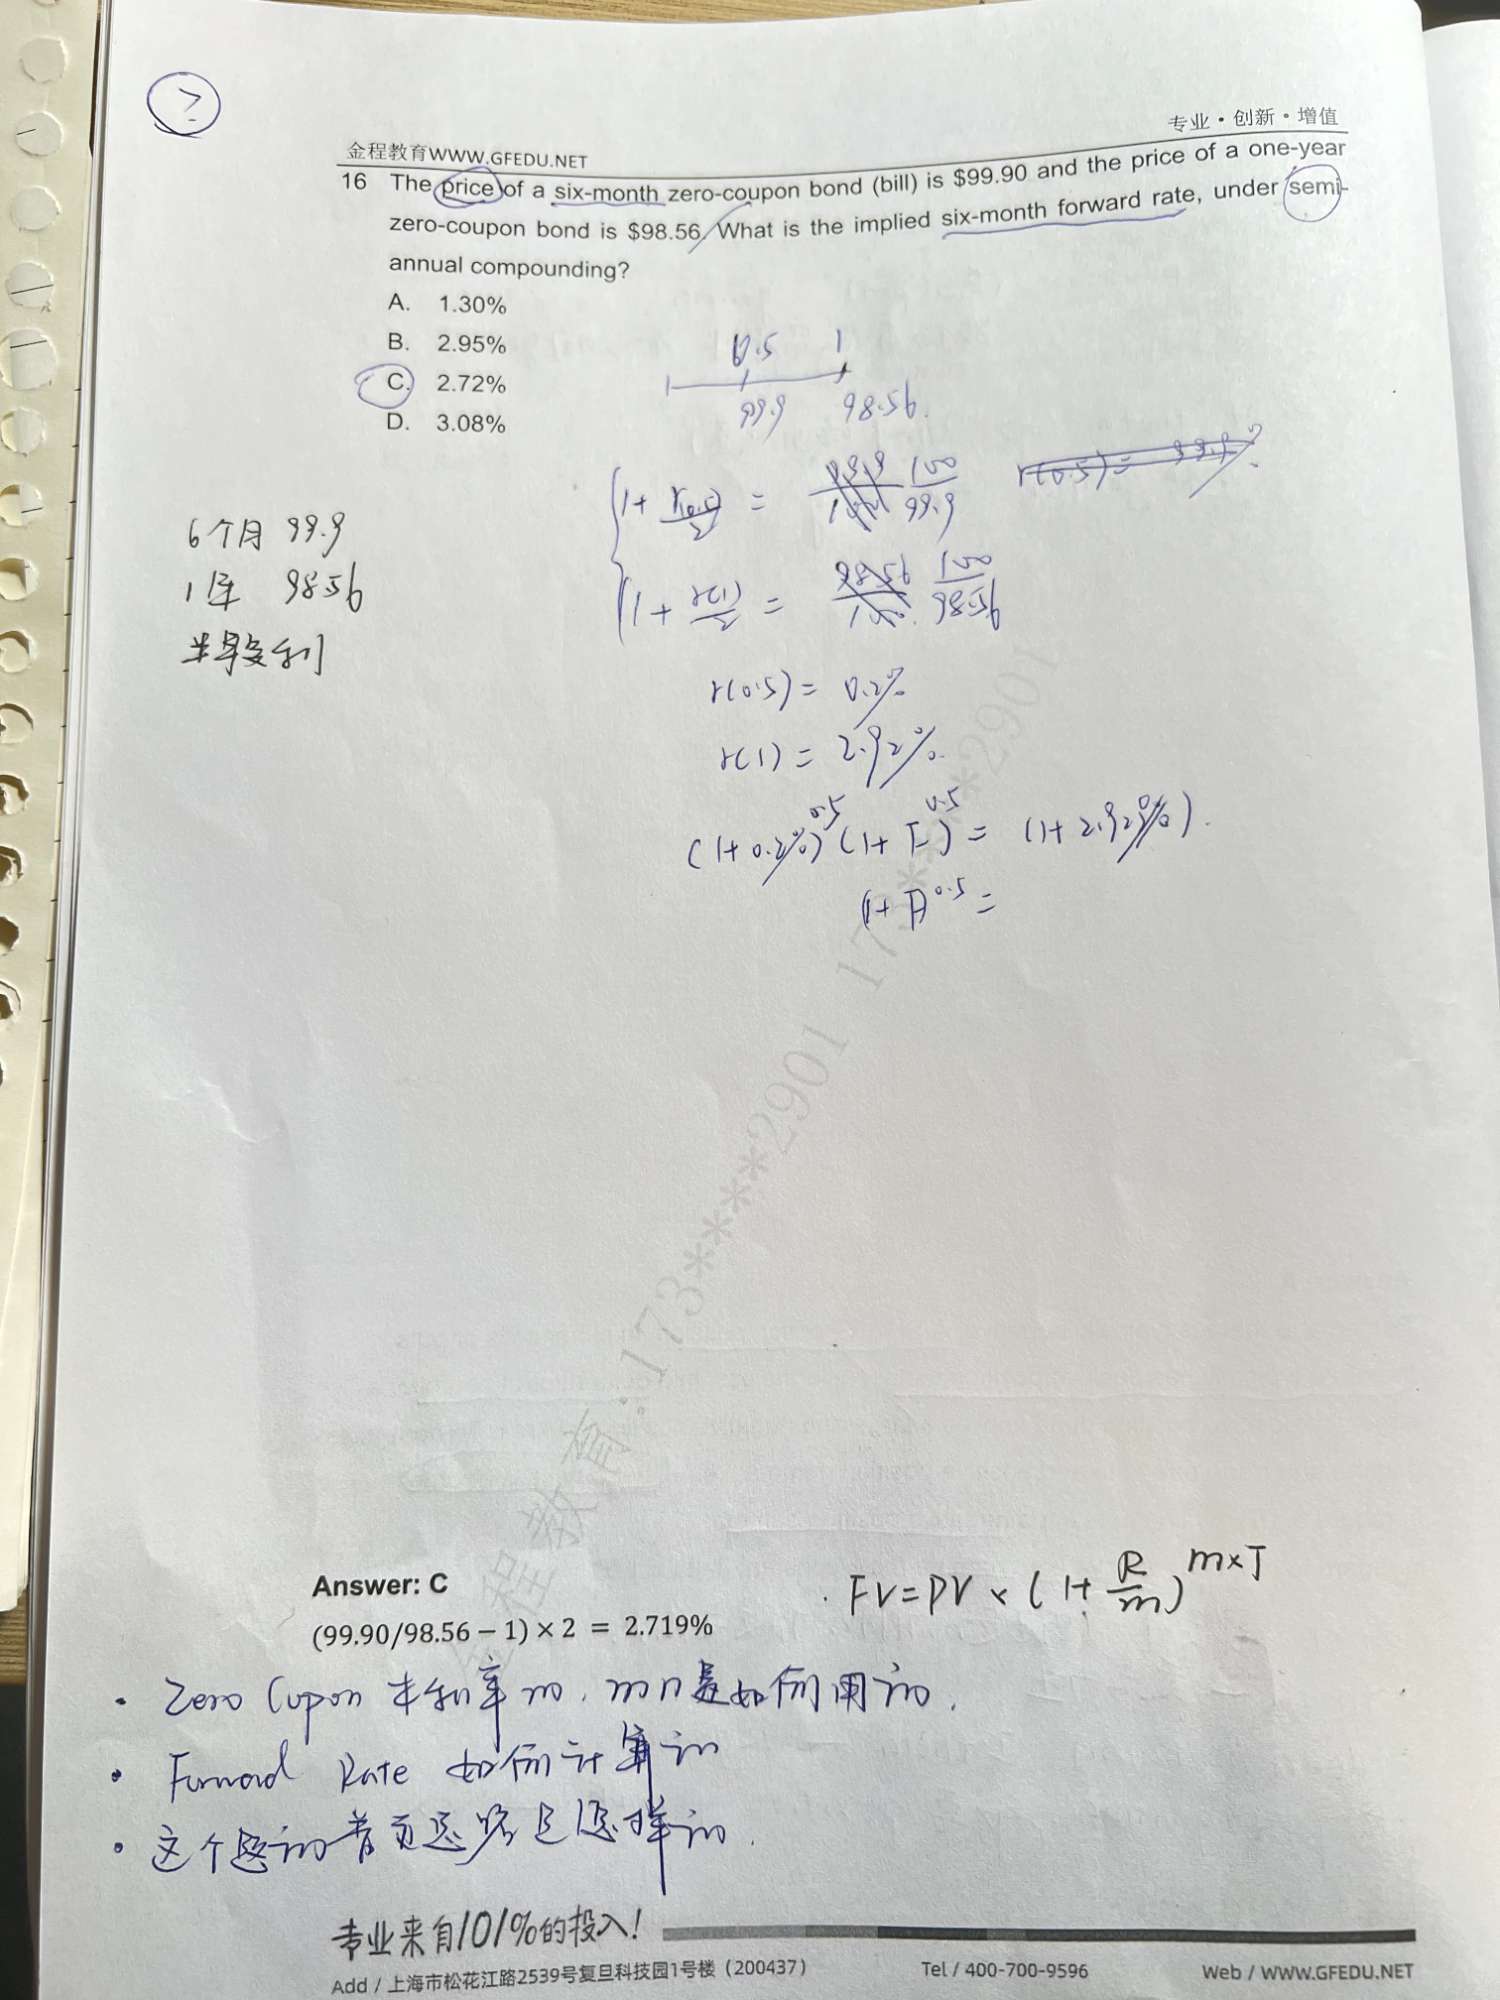 ?
专业·创新·增值
金程教育WWW.GFEDU.NET
16 The price of a six-month zero-coupon bond (bill) is $99.90 and the price of a one-year
zero-coupon bond is $98.56. What is the implied six-month forward rate, under semi-
annual compounding?
A. 1.30%
B. 2.95%
C. 2.72%
D. 3.08%
0.5 1
99.9 98.56.
1 + r(0.5)/2 = 100/99.9
1 + r(1)/2 = 100/98.56
6个月 99.9
1年 98.56
半年复利
r(0.5) = 0.2%
r(1) = 2.92%
(1+0.2%)^0.5 (1+F)^0.5 = (1+2.92%).
(1+F)^0.5 =
金程教育:173****2901 173****2901
Answer: C
(99.90/98.56 − 1) × 2 = 2.719%
FV = PV × (1+ R/m)^m×T
· Zero Cupon 求利率的, m n是如何用的.
· Forward Rate 如何计算的
· 这个题的 思路是怎样的.
专业来自101%的投入!
Add / 上海市松花江路2539号复旦科技园1号楼（200437）
Tel / 400-700-9596
Web / WWW.GFEDU.NET